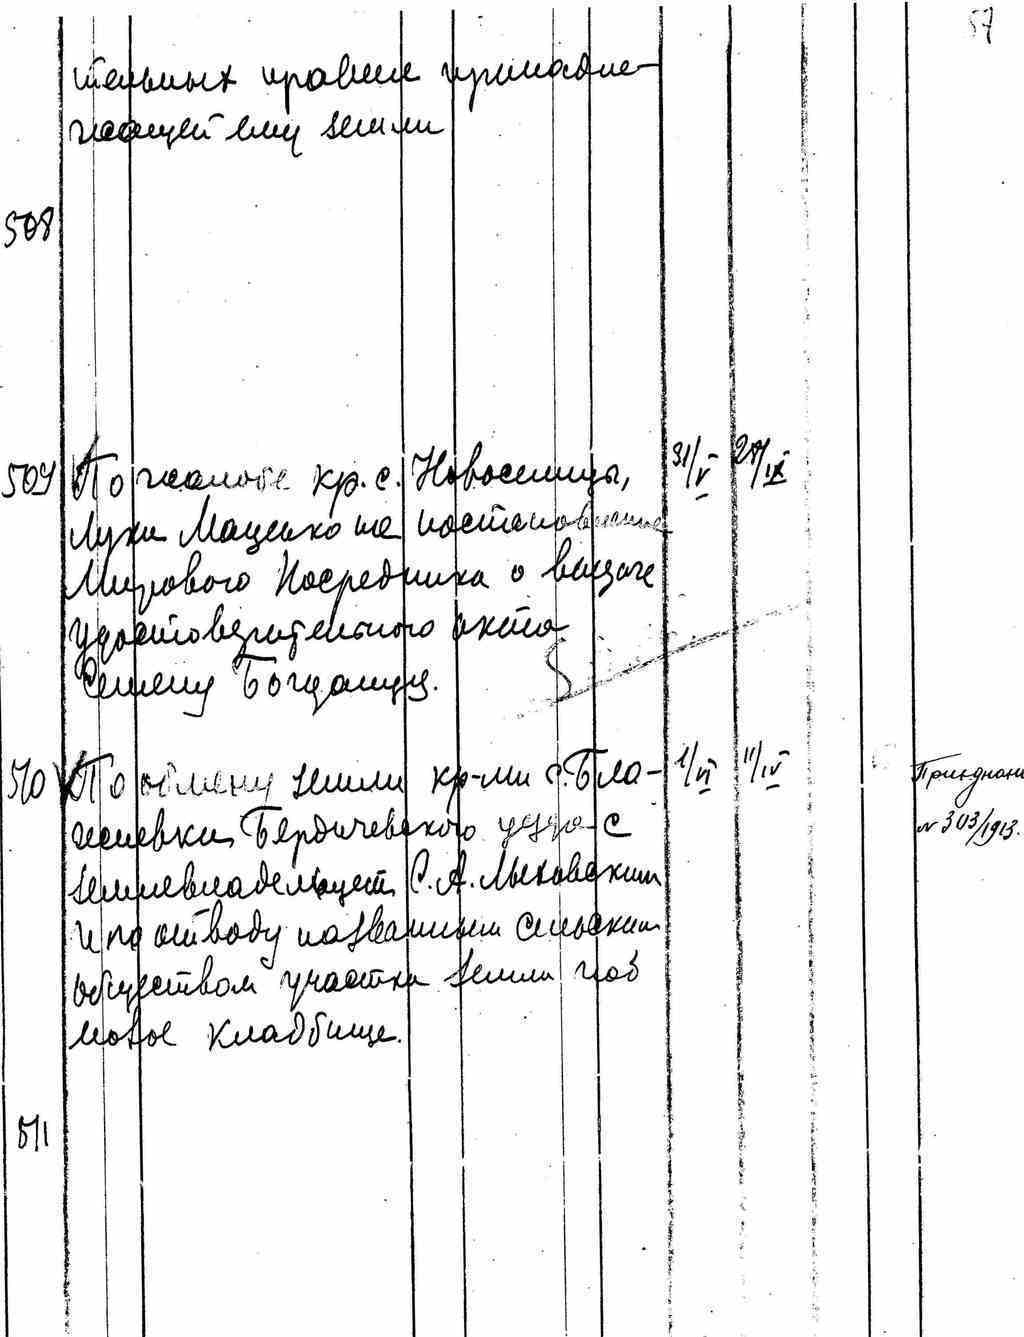 57
тельных правил принадле-
жащей ему земли
508
509 По жалобе кр. с. Новоселицы, 31/V 27/IX
Луки Маценко на постановление
Мирового Посредника о выдаче
удостоверительного акта
Семену Богданцу.
510 По обмену земли кр-ми с. Бла- 1/VI 11/IV Приєднани
жиевки Бердичевского уезда с № 303/1913.
землевладельцем С. А. Лыховским
и по отводу названным сельским
обществом участка земли под
новое кладбище.
511